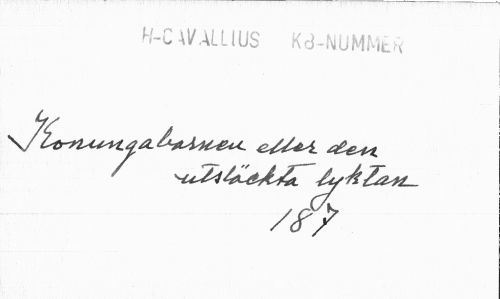 H-CAVALLIUS KB-NUMMER
Konungabarnen eller den
utsläckta lyktan
187